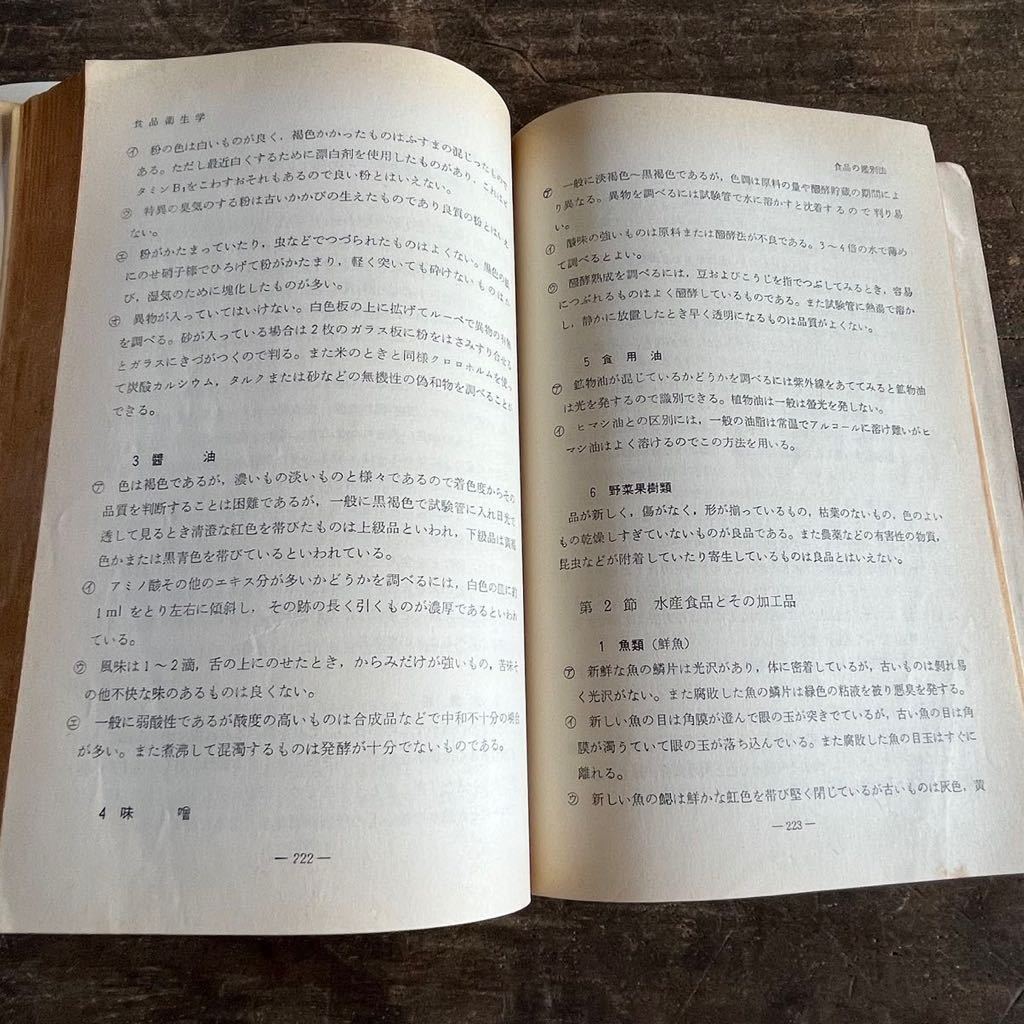 食品衛生学
㋑ 粉の色は白いものが良く，褐色かかったものはふすまの混じったもので
ある。ただし最近白くするために漂白剤を使用したものがあり，これはビ
タミンB₁をこわすおそれもあるので良い粉とはいえない。
㋒ 特異の臭気のする粉は古いかかびの生えたものであり良質の粉とはいえ
ない。
㋓ 粉がかたまっていたり，虫などでつづられたものはよくない。黒色の紙
にのせ硝子棒でひろげて粉がかたまり，軽く突いても砕けないものは
び，湿気のために塊化したものが多い。
㋔ 異物が入っていてはいけない。白色板の上に拡げてルーペで異物の有無
を調べる。砂が入っている場合は2枚のガラス板に粉をはさみすり合せる
とガラスにきづがつくので判る。また米のときと同様クロロホルムを使っ
て炭酸カルシウム，タルクまたは砂などの無機性の偽和物を調べることが
できる。
3 醬 油
㋐ 色は褐色であるが，濃いもの淡いものと様々であるので着色度からその
品質を判断することは困難であるが，一般に黒褐色で試験管に入れ日光で
透して見るとき清澄な紅色を帯びたものは上級品といわれ，下級品は黄褐
色かまたは黒青色を帯びているといわれている。
㋑ アミノ酸その他のエキス分が多いかどうかを調べるには，白色の皿に約
1ml をとり左右に傾斜し，その跡の長く引くものが濃厚であるといわれ
ている。
㋒ 風味は1～2滴，舌の上にのせたとき，からみだけが強いもの，苦味そ
の他不快な味のあるものは良くない。
㋓ 一般に弱酸性であるが酸度の高いものは合成品などで中和不十分の場合
が多い。また煮沸して混濁するものは発酵が十分でないものである。
4 味 噌
―222―
食品の鑑別法
㋐ 一般に淡褐色～黒褐色であるが，色調は原料の量や醗酵貯蔵の期間によ
り異なる。異物を調べるには試験管で水に溶かすと沈着するので判り易
い。
㋑ 酸味の強いものは原料または醗酵法が不良である。3～4倍の水で薄め
て調べるとよい。
㋒ 醗酵熟成を調べるには，豆およびこうじを指でつぶしてみるとき，容易
につぶれるものはよく醗酵しているものである。また試験管に熱湯で溶か
し，静かに放置したとき早く透明になるものは品質がよくない。
5 食 用 油
㋐ 鉱物油が混じているかどうかを調べるには紫外線をあててみると鉱物油
は光を発するので識別できる。植物油は一般は螢光を発しない。
㋑ ヒマシ油との区別には，一般の油脂は常温でアルコールに溶け難いがヒ
マシ油はよく溶けるのでこの方法を用いる。
6 野菜果樹類
品が新しく，傷がなく，形が揃っているもの，枯葉のないもの，色のよい
もの乾燥しすぎていないものが良品である。また農薬などの有害性の物質，
昆虫などが附着していたり寄生しているものは良品とはいえない。
第2節 水産食品とその加工品
1 魚類（鮮魚）
㋐ 新鮮な魚の鱗片は光沢があり，体に密着しているが，古いものは剝れ易
く光沢がない。また腐敗した魚の鱗片は緑色の粘液を被り悪臭を発する。
㋑ 新しい魚の目は角膜が澄んで眼の玉が突きでているが，古い魚の目は角
膜が濁うていて眼の玉が落ち込んでいる。また腐敗した魚の目玉はすぐに
離れる。
㋒ 新しい魚の鰓は鮮かな虹色を帯び堅く閉じているが古いものは灰色，黄
―223―